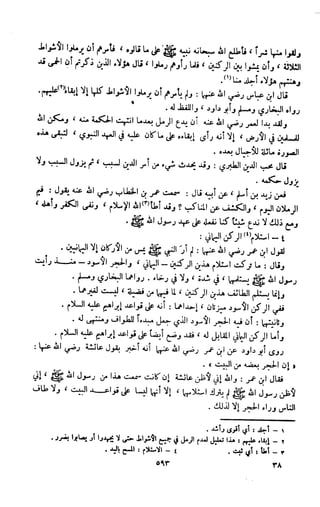 ولقوا منها شراً ، فأطلع الله سبحانه نبيه ﷺ على ما قالوه ، فأمرهم أن يرملوا الأشواط
الثلاثة ، وأن يمشوا بين الركنين ، فلما رأوهم رملوا ، قال هؤلاء الذين ذكرتم أن الحمى قد
وهنتهم هؤلاء أجلد منا(١) .
قال ابن عباس رضي الله عنهما : ولم يأمرهم أن يرملوا الأشواط كلها إلا إبقاء(٢) عليهم .
رواه البخاري ومسلم وأبو داود ، واللفظ له .
ولقد بدا لعمر رضي الله عنه أن يدع الرمل بعدما انتهت الحكمة منه ، ومكن الله
للمسلمين في الأرض ، إلا أنه رأى إبقاءه على ما كان عليه في العهد النبوي ، لتبقى هذه
الصورة ماثلة للأجيال بعده .
قال محب الدين الطبري : وقد يحدث شيء من أمر الدين لسبب ، ثم يزول السبب ولا
يزول حكمه .
فعن زيد بن أسلم ، عن أبيه قال : سمعت عمر بن الخطاب رضي الله عنه يقول : فيم
الرملان اليوم ، والكشف عن المناكب ؟ وقد أطأ(٣) الله الإسلام ، ونفى الكفر وأهله ،
ومع ذلك لا ندع شيئاً كنا نفعله على عهد رسول الله ﷺ .
٤ - استلام(٤) الركن اليماني :
لقول ابن عمر رضي الله عنهما : لم أر النبي ﷺ يمس من الأركان إلا اليمانيين .
وقال : ما تركت استلام هذين الركنين - اليماني ، والحجر الأسود - منذ رأيت
رسول الله ﷺ يستلمهما ، في شدة ، ولا في رخاء . رواهما البخاري ومسلم .
وإنما يستلم الطائف هذين الركنين ، لما فيهما من فضيلة ، ليست لغيرهما .
ففي الركن الأسود ميزتان ، إحداهما : أنه على قواعد إبراهيم عليه السلام .
وثانيتهما : أن فيه الحجر الأسود الذي جعل مبدأ للطواف ومنتهى له .
وأما الركن اليماني المقابل له ، فقد وضع أيضاً على قواعد إبراهيم عليه السلام .
روى أبو داود عن ابن عمر رضي الله عنهما أنه أخبر بقول عائشة رضي الله عنها :
« إن الحجر بعضه من البيت » .
فقال ابن عمر : والله إني لأظن عائشة إن كانت سمعت هذا من رسول الله ﷺ ، إني
لأظن رسول الله ﷺ لم يترك استلامهما ، إلا أنهما ليسا على قواعد البيت ، ولا طاف
الناس وراء الحجر إلا لذلك .
١ - أجلد : أي أقوى وأشد .
٢ - إبقاء عليهم : هذا تعليل لعدم الرمل في جميع الأشواط حتى لا يجهدوا أو يصابوا بضرر .
٣ - أطأ : أي ثبت .
٤ - الاستلام : المسح باليد .
٥٩٣
٣٨